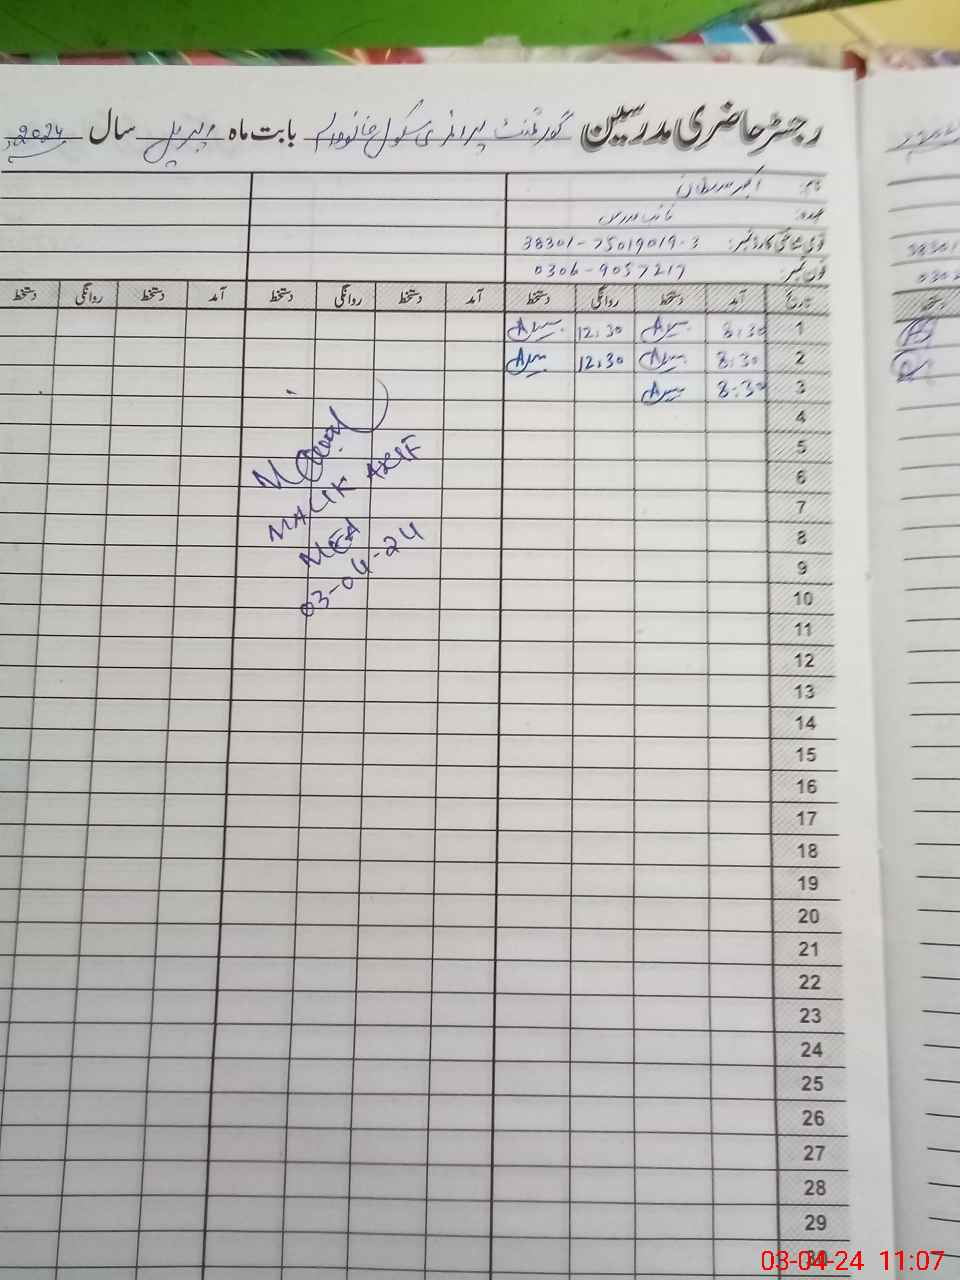 رجسٹر حاضری مدرسین گورنمنٹ پرائمری سکول بابت ماہ اپریل سال 2024ء
نام:
عہدہ: نائب مدرس
قومی شناختی کارڈ نمبر: 38301-75019019-3
فون نمبر: 0306-9057217
تاریخ آمد دستخط روانگی دستخط آمد دستخط روانگی دستخط آمد دستخط روانگی دستخط
1 8:30 12:30
2 8:30 12:30
3 8:30
4
5
6
7
8
9
10
11
12
13
14
15
16
17
18
19
20
21
22
23
24
25
26
27
28
29
30
MALIK ARIF
MEA
03-04-24
دستخط
03-04-24 11:07